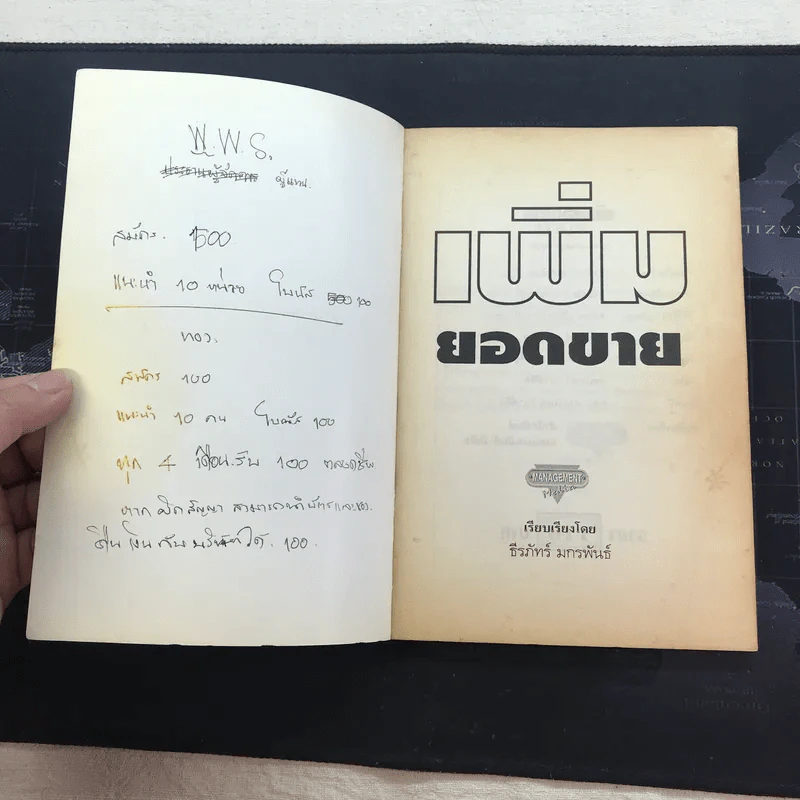 W.W.S.
ผู้แทน.
สมัคร. 1500
แนะนำ 10 หน่วย โบนัส 500 100
ทอง.
สมัคร 100
แนะนำ 10 คน โบนัส 100
ทุก 4 เดือน.รับ 100 ตลอดชีพ
หาก ผิด สัญญา สามารถ บัตรและ
คืน เงิน กับ บริษัทได้. 100.
เพิ่ม
ยอดขาย
MANAGEMENT
เรียบเรียงโดย
ธีรภัทร์ มกรพันธ์